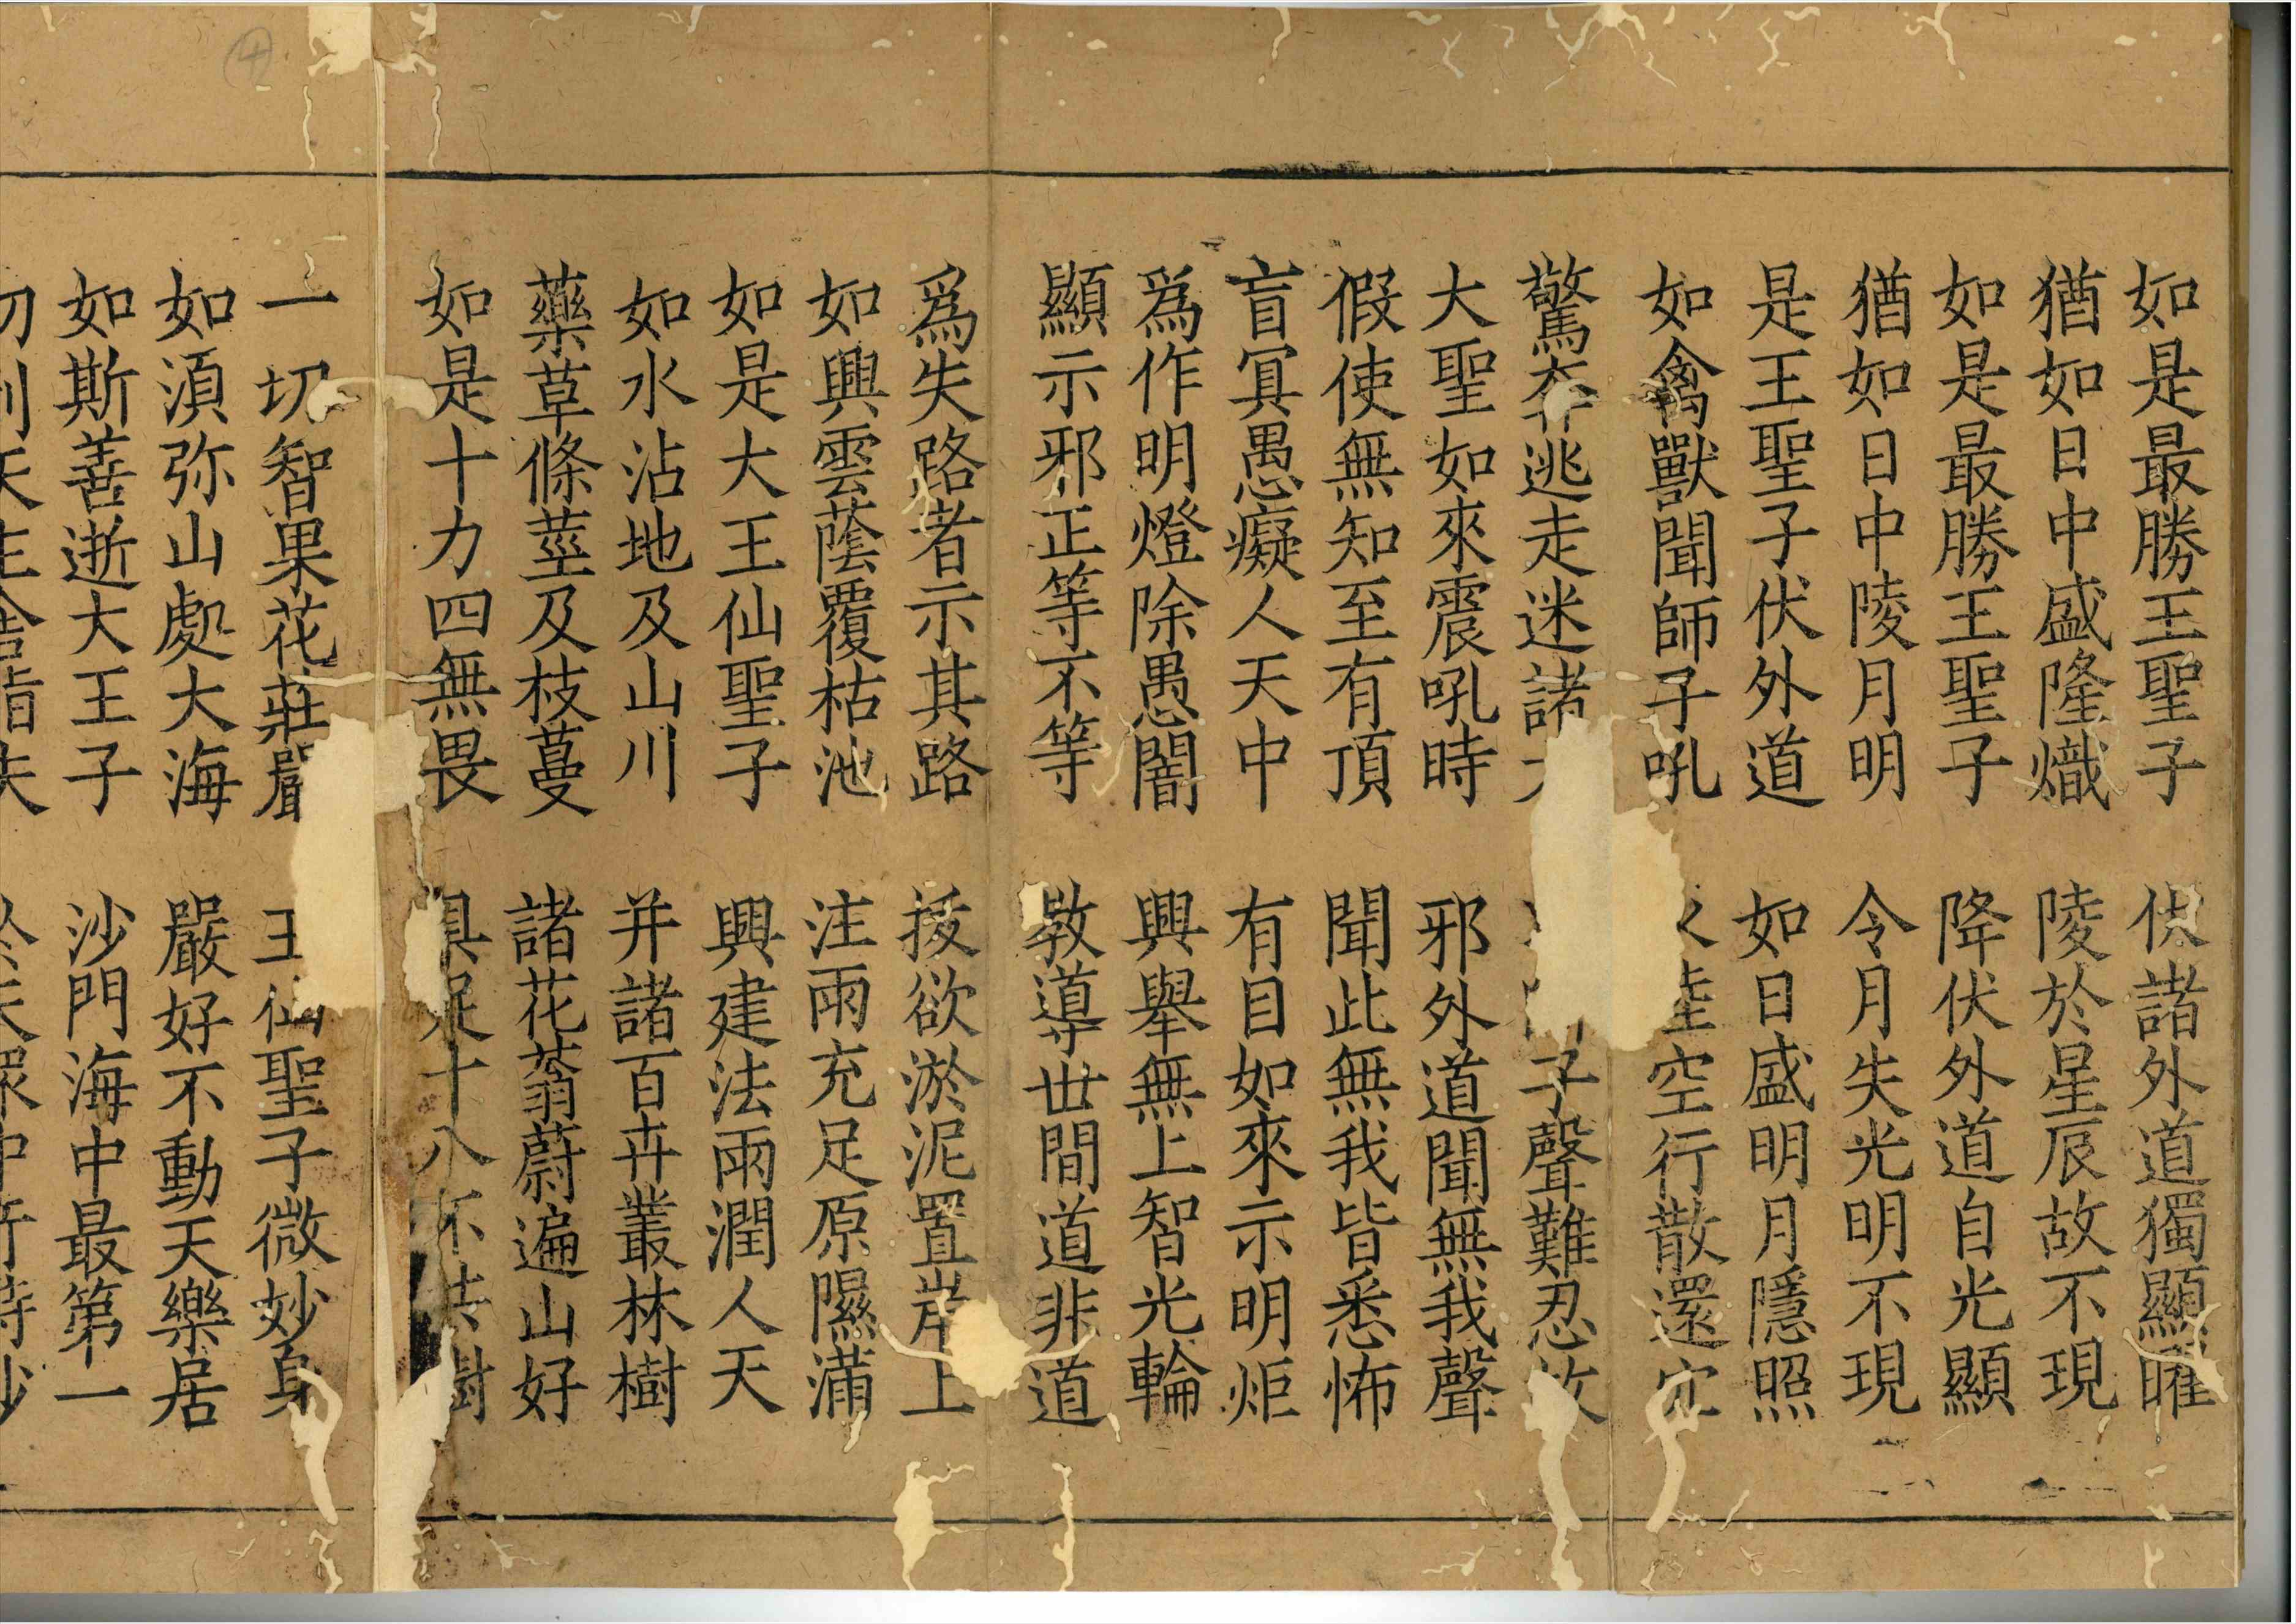 如是最勝王聖子　伏諸外道獨顯曜
猶如日中盛隆熾　陵於星辰故不現
如是最勝王聖子　降伏外道自光顯
猶如日中陵月明　令月失光明不現
是王聖子伏外道　如日盛明月隱照
如禽獸聞師子吼　空行散還穴
驚奔逃走迷諸　子聲難忍故
大聖如來震吼時　邪外道聞無我聲
假使無知至有頂　聞此無我皆悉怖
盲冥愚癡人天中　有目如來示明炬
爲作明燈除愚闇　興舉無上智光輪
顯示邪正等不等　教導世間道非道
爲失路者示其路　拔欲淤泥置岸上
如興雲蔭覆枯池　注雨充足原隰滿
如是大王仙聖子　興建法雨潤人天
如水沾地及山川　并諸百卉叢林樹
藥草條莖及枝蔓　諸花蓊蔚遍山好
如是十力四無畏　具足十八不樹
一切智果花莊嚴　王仙聖子微妙身
如湏弥山處大海　嚴好不動天樂居
如斯善逝大王子　沙門海中最第一